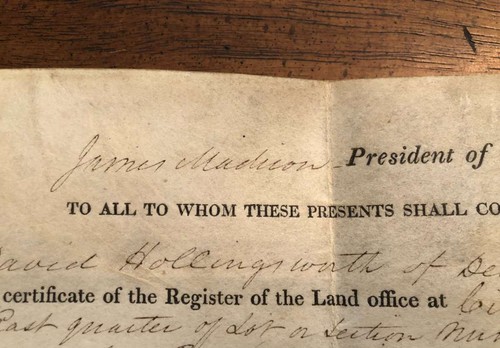 James Madison President of
TO ALL TO WHOM THESE PRESENTS SHALL CO
David Hollingsworth of De
certificate of the Register of the Land office at Ci
East quarter of Lot or Section Num